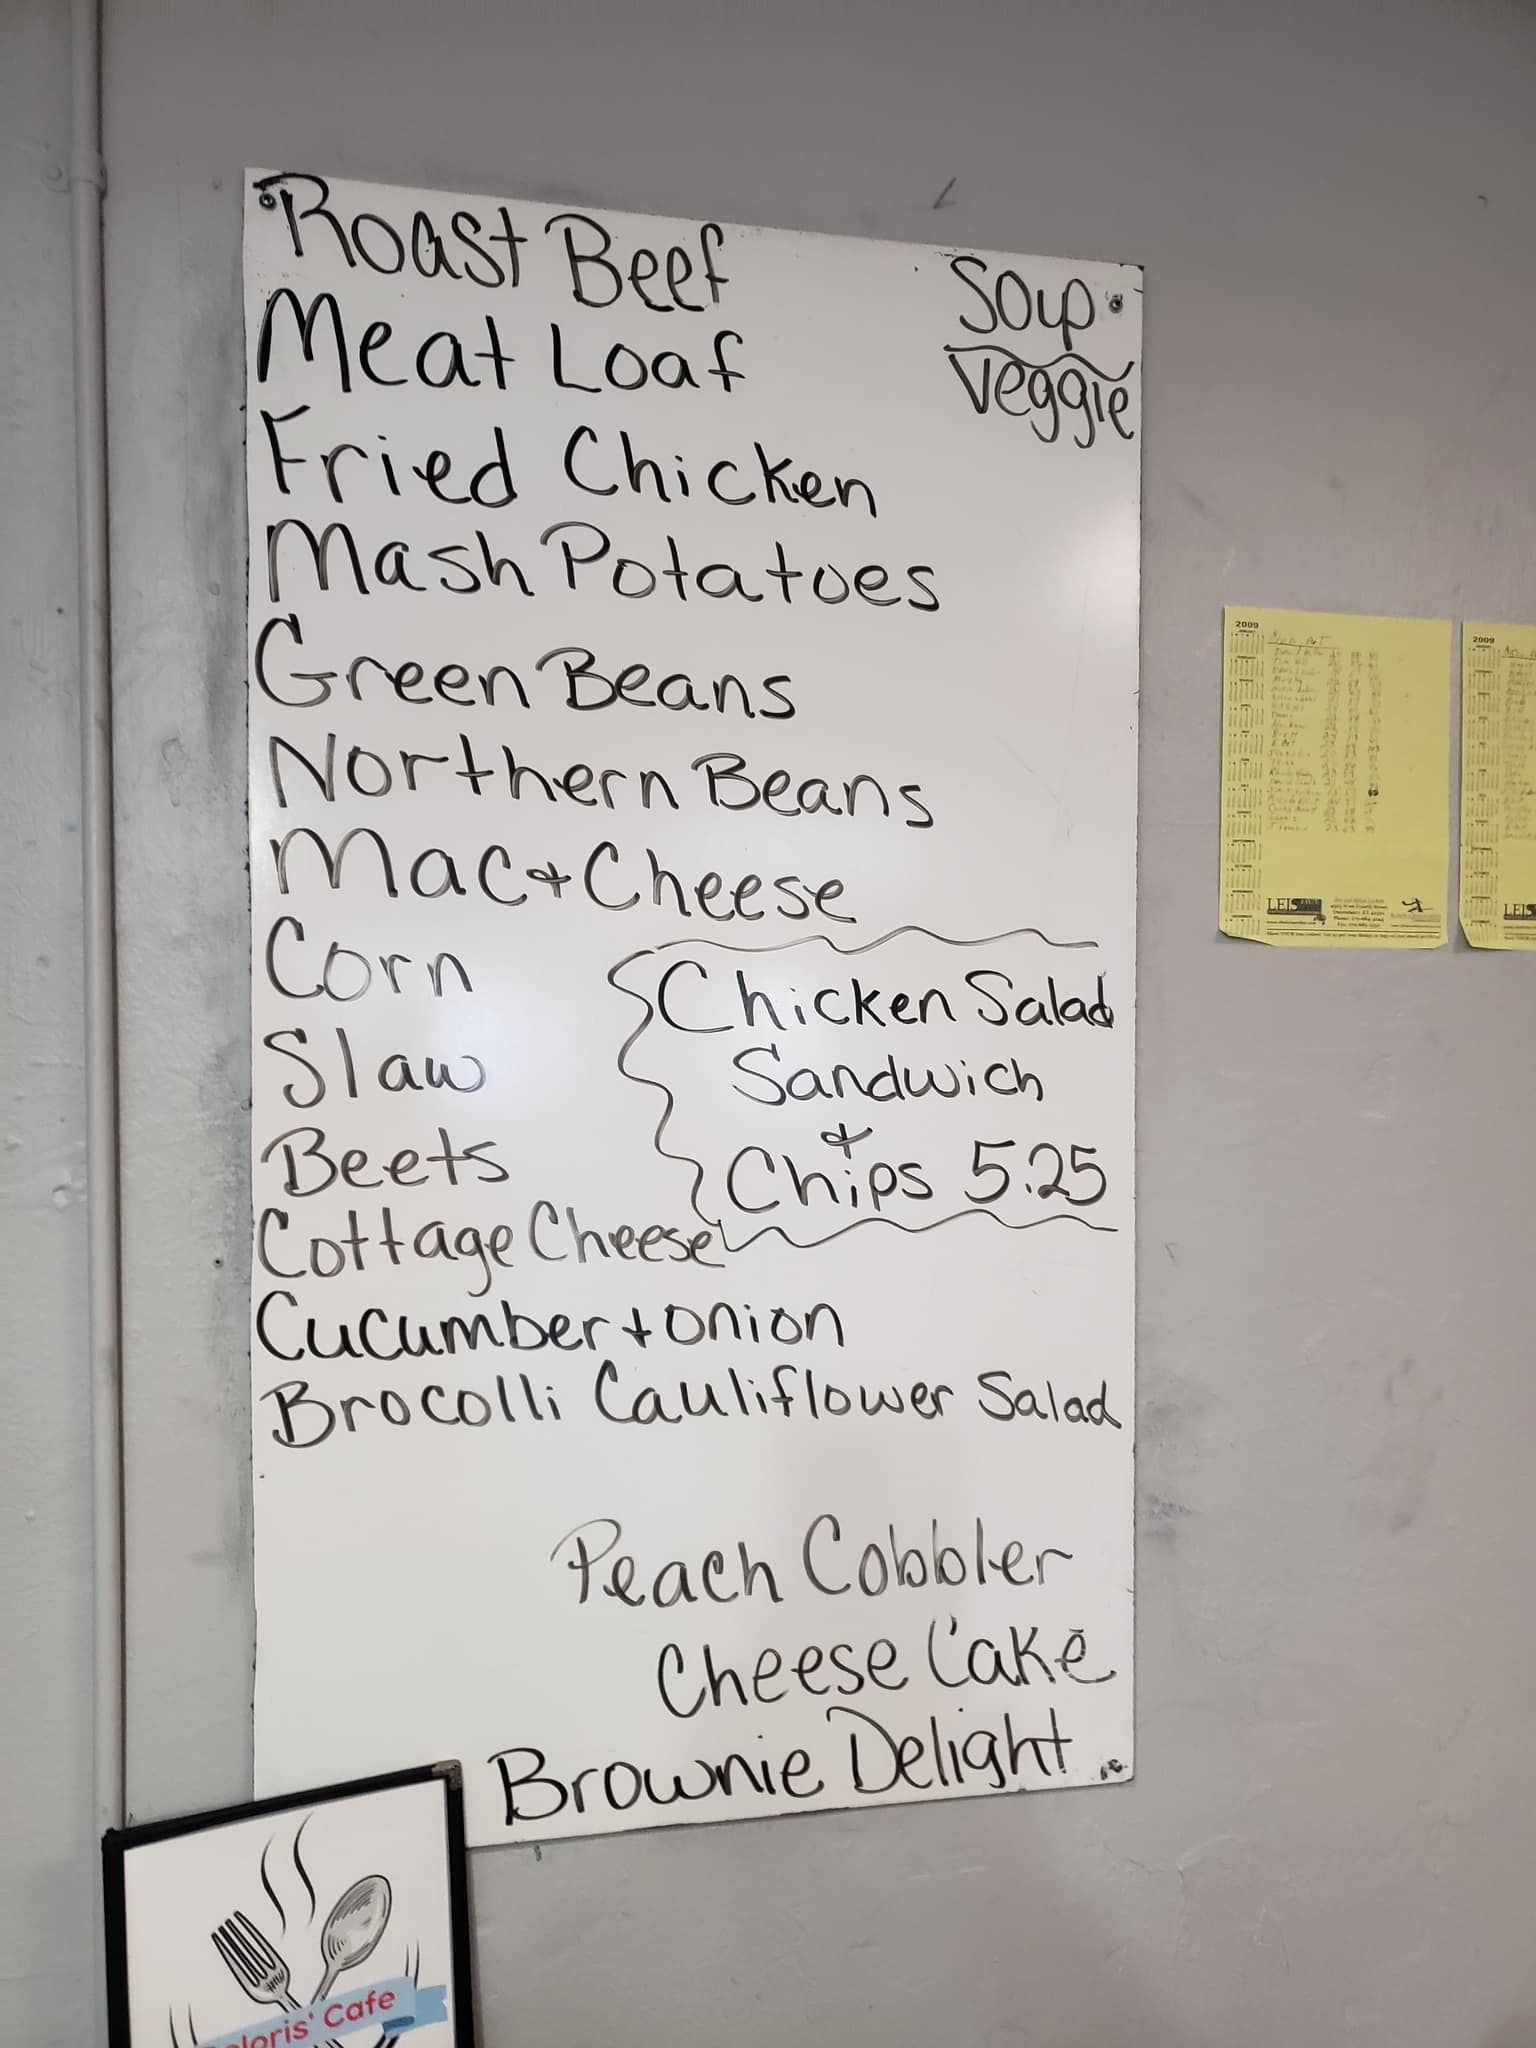 Roast Beef
Meat Loaf
Fried Chicken
Mash Potatoes
Green Beans
Northern Beans
Mac & Cheese
Corn
Slaw
Beets
Cottage Cheese
Cucumber + onion
Brocolli Cauliflower Salad
Soup
Veggie
Chicken Salad
Sandwich
&
Chips 5.25
Peach Cobbler
Cheese Cake
Brownie Delight
2009
2009
Cafe